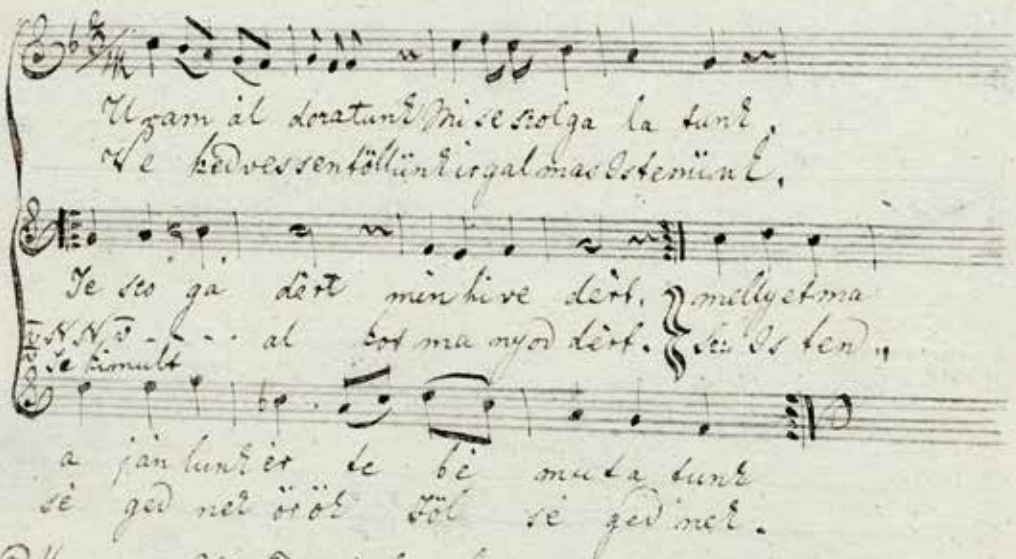 Uram ál doratunk Mi se szolga la tunk.
Ve kedvessen töllünk irgalmas Istenünk.
Te szo ga dért min hive dért. mellyet ma
v N N v - - - - al kot ma nyod dért. Isten d.,
Se kimult
a ján lunk és te bé muta tunk
sé ged nek örök föl sé ged nek.